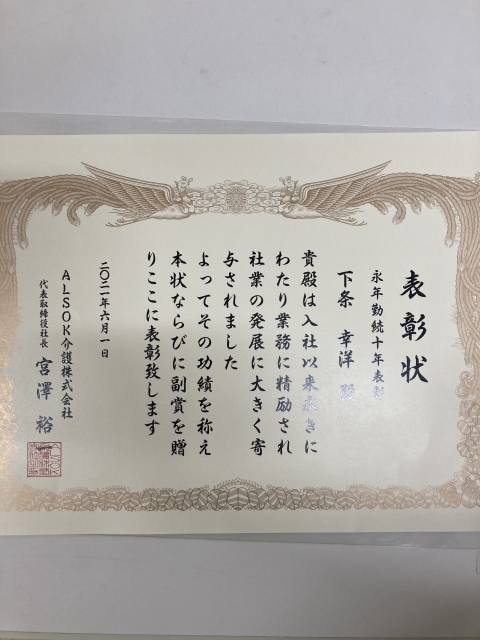 表彰状
永年勤続十年表彰
下条 幸洋 殿
貴殿は入社以来永きに
わたり業務に精励され
社業の発展に大きく寄
与されました
よってその功績を称え
本状ならびに副賞を贈
りここに表彰致します
二〇二一年六月一日
ALSOK介護株式会社
代表取締役社長 宮澤 裕